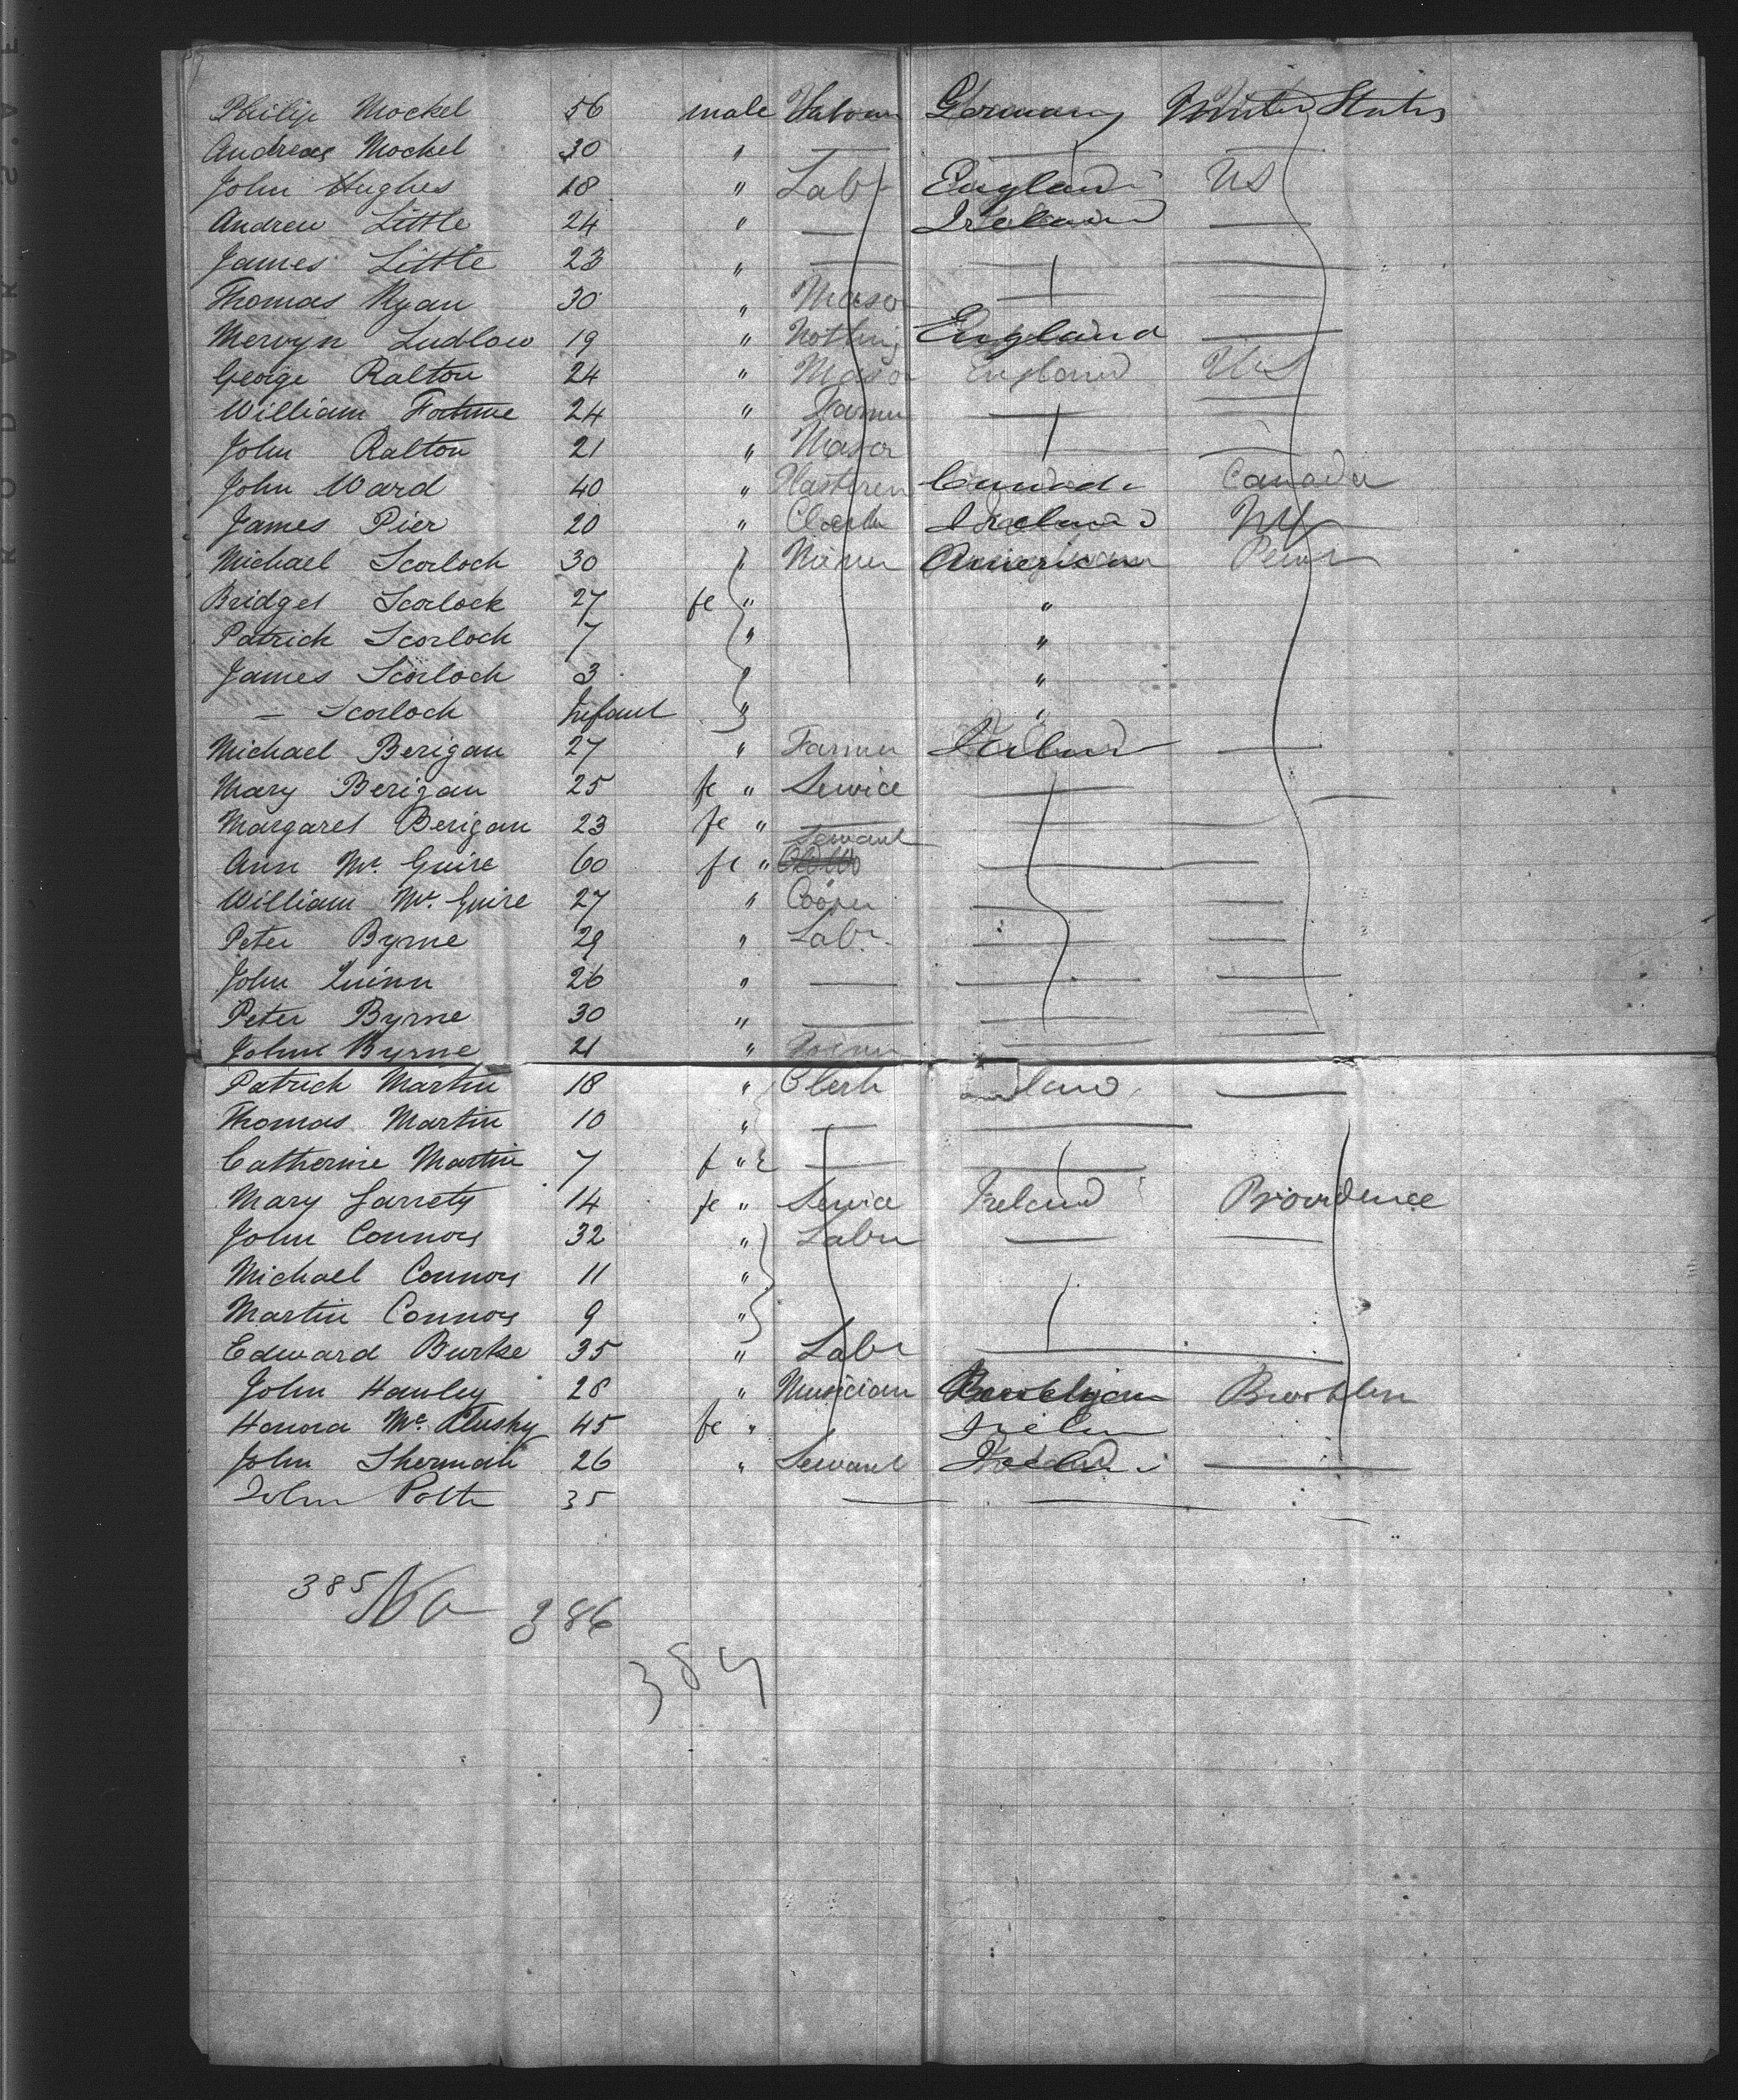 Philip Mockel 56 male Labour Germany United States
Andreas Mockel 30 " — — —
John Hughes 18 " Labr England US
Andrew Little 24 " — Ireland —
James Little 23 " — — —
Thomas Ryan 30 " Mason — —
Mervyn Ludlow 19 " Nothing England —
George Ralton 24 " Mason England US
William Fortune 24 " Farmer — —
John Ralton 21 " Mason —
John Ward 40 " Canada Canada
James Pier 20 " Clerk Ireland NY
Michael Scorloch 30 " Miner American Penn
Bridget Scorlock 27 fe " "
Patrick Scorloch 7 " "
James Scorloch 3 " "
— Scorloch Infant " "
Michael Berigan 27 " Farmer Ireland —
Mary Berigan 25 fe " Service — —
Margaret Berigan 23 fe " — —
Ann Mc Guire 60 fe " Servant —
William Mc Guire 27 " Cooper — —
Peter Byrne 29 " Labr. — —
John Quinn 26 " — — —
Peter Byrne 30 " — — —
John Byrne 21 " — —
Patrick Martin 18 " Clerk —
Thomas Martin 10 " — —
Catherine Martin 7 f " — —
Mary Garrety 14 fe " Service Ireland Providence
John Connors 32 " Labr — —
Michael Connors 11 "
Martin Connors 9 "
Edward Burke 35 " Labr —
John Hanley 28 " Musician Brooklyn Brooklyn
Honora Mc Clusky 45 fe " Irelan
John Sherman 26 " Servant Ireland —
John Potte 35 — — —
385 No 386
384
KODAK S.A.E